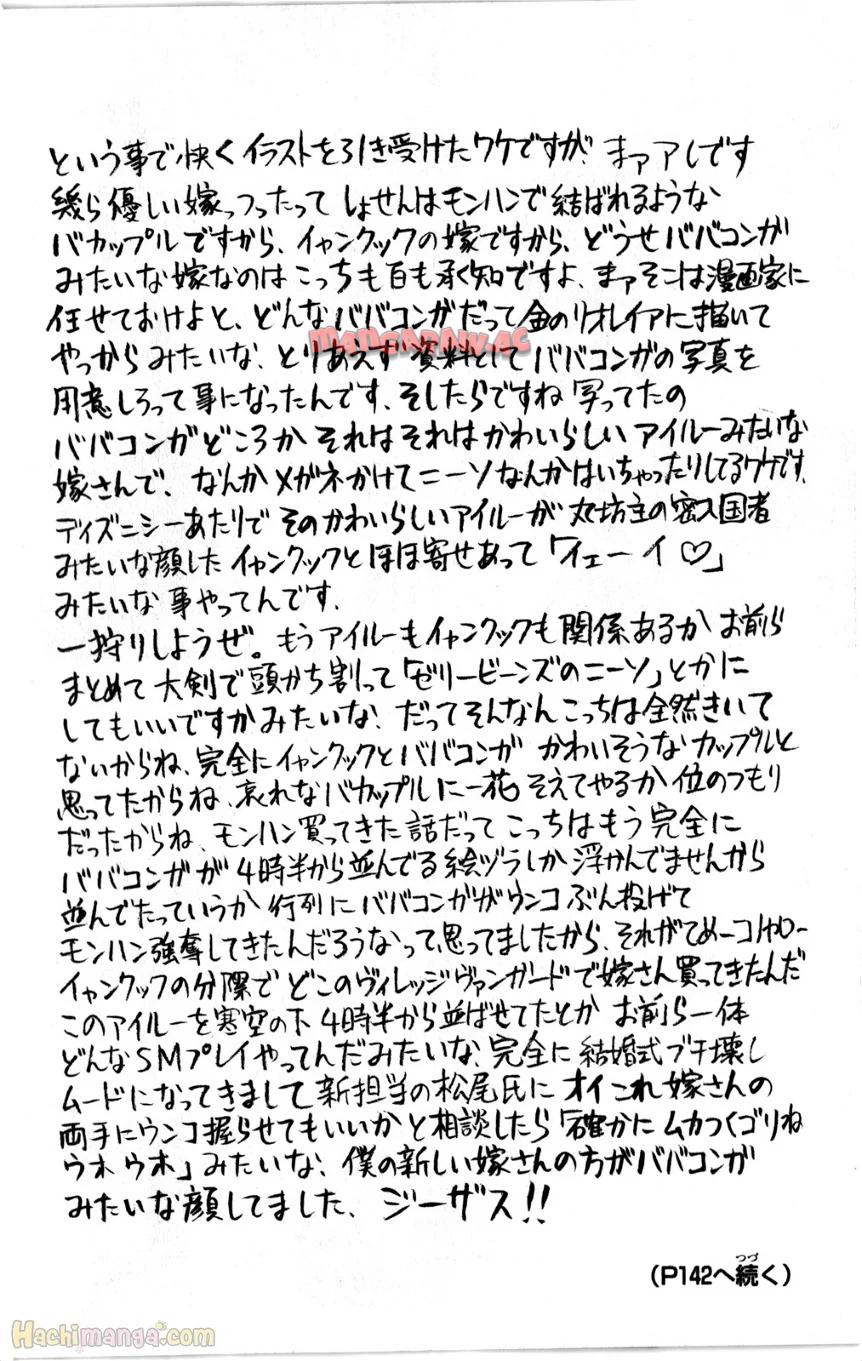 という事で快くイラストを引き受けたワケですが、まァアレです
幾ら優しい嫁っつったって しょせんはモンハンで結ばれるような
バカップルですから、イャンクックの嫁ですから、どうせババコンガ
みたいな嫁なのはこっちも百も承知ですよ、まァそこは漫画家に
任せておけよと、どんなババコンガだって金のリオレイアに描いて
MANGARAW.AC
やっからみたいな、とりあえず資料としてババコンガの写真を
用意しろって事になったんです、そしたらですね写ってたの
ババコンガどころかそれはそれはかわいらしいアイルーみたいな
嫁さんで、なんかメガネかけてニーソなんかはいちゃったりしてるワケです、
ディズニシーあたりでそのかわいらしいアイルーが丸坊主の密入国者
みたいな顔したイャンクックとほほ寄せあって「イェーイ♡」
みたいな事やってんです、
一狩りしようぜ。もうアイルーもイャンクックも関係あるかお前ら
まとめて大剣で頭かち割って「ゼリービーンズのニーソ」とかに
してもいいですかみたいな、だってそんなんこっちは全然きいて
ないからね、完全にイャンクックとババコンガ かわいそうなカップルと
思ってたからね、哀れなバカップルに一花そえてやるか位のつもり
だったからね、モンハン買ってきた話だってこっちはもう完全に
ババコンガが4時半から並んでる絵ヅラしか浮かんでませんから
並んでたっていうか行列にババコンガがウンコぶん投げて
モンハン強奪してきたんだろうなって思ってましたから、それがてめーコノヤロー
イャンクックの分際でどこのヴィレッジヴァンガードで嫁さん買ってきたんだ
このアイルーを寒空の下4時半から並ばせてたとか お前ら一体
どんなSMプレイやってんだみたいな、完全に結婚式ブチ壊し
ムードになってきまして新担当の松尾氏にオイこれ嫁さんの
両手にウンコ握らせてもいいかと相談したら「確かにムカつくゴリね
ウホウホ」みたいな、僕の新しい嫁さんの方がババコンガ
みたいな顔してました、ジーザス!!
(P142へ続く)
つづ
Hachimanga.com